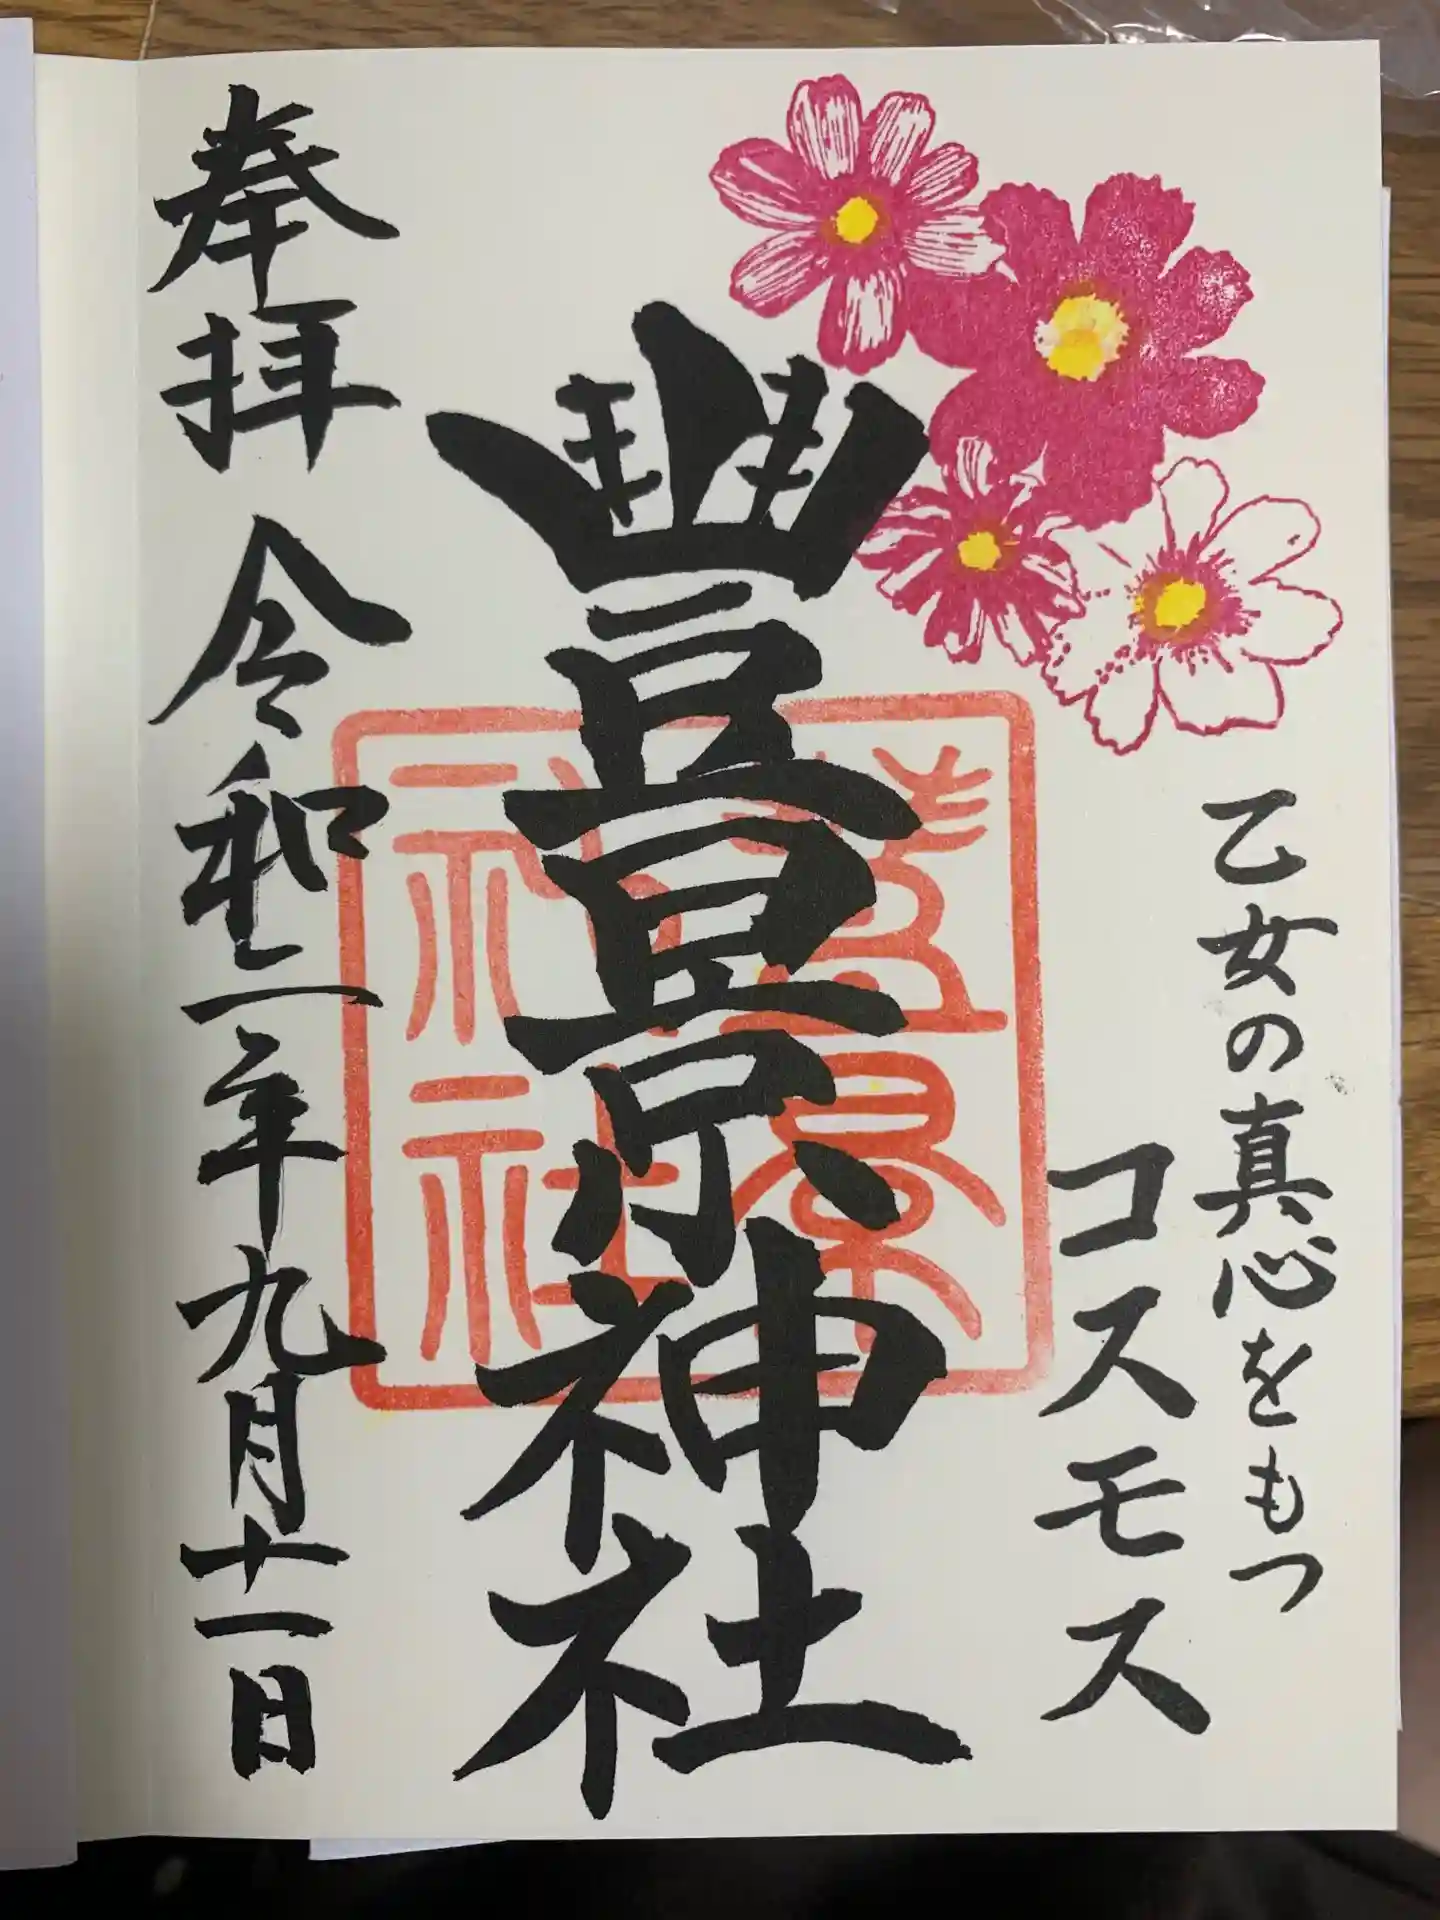 乙女の真心をもつ
コスモス
豊景神社
奉拝 令和二年九月十一日